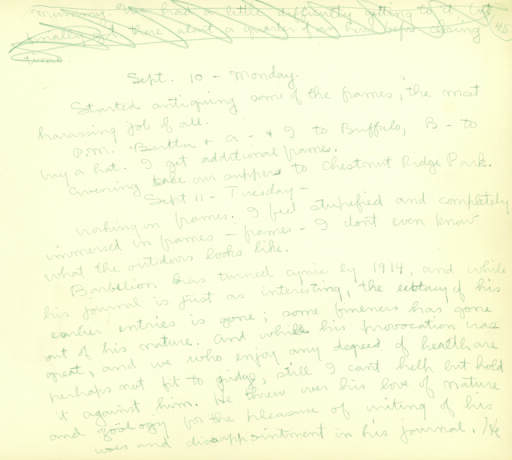 had a little difficulty getting to it, but
there about a quarter of an hour before closing 45
Sept. 10 - Monday.
Started antiquing some of the frames, the most
harassing job of all.
P.M. Bertha + a - + I to Buffalo, B - to
buy a hat. I get additional frames.
Evening take our supper to Chestnut Ridge Park.
Sept 11 - Tuesday -
Working on frames. I feel stupefied and completely
immersed in frames - frames - I don't even know
what the outdoors looks like.
Barbellion has turned cynic by 1914, and while
his journal is just as interesting, the ecstacy of his
earlier entries is gone; some fineness has gone
out of his nature. And while his provocation was
great, and we who enjoy any degree of health are
perhaps not fit to judge, still I can't help but hold
it against him. He threw over his love of nature
and zoology for the pleasure of writing of his
woes and disappointment in his journal. He